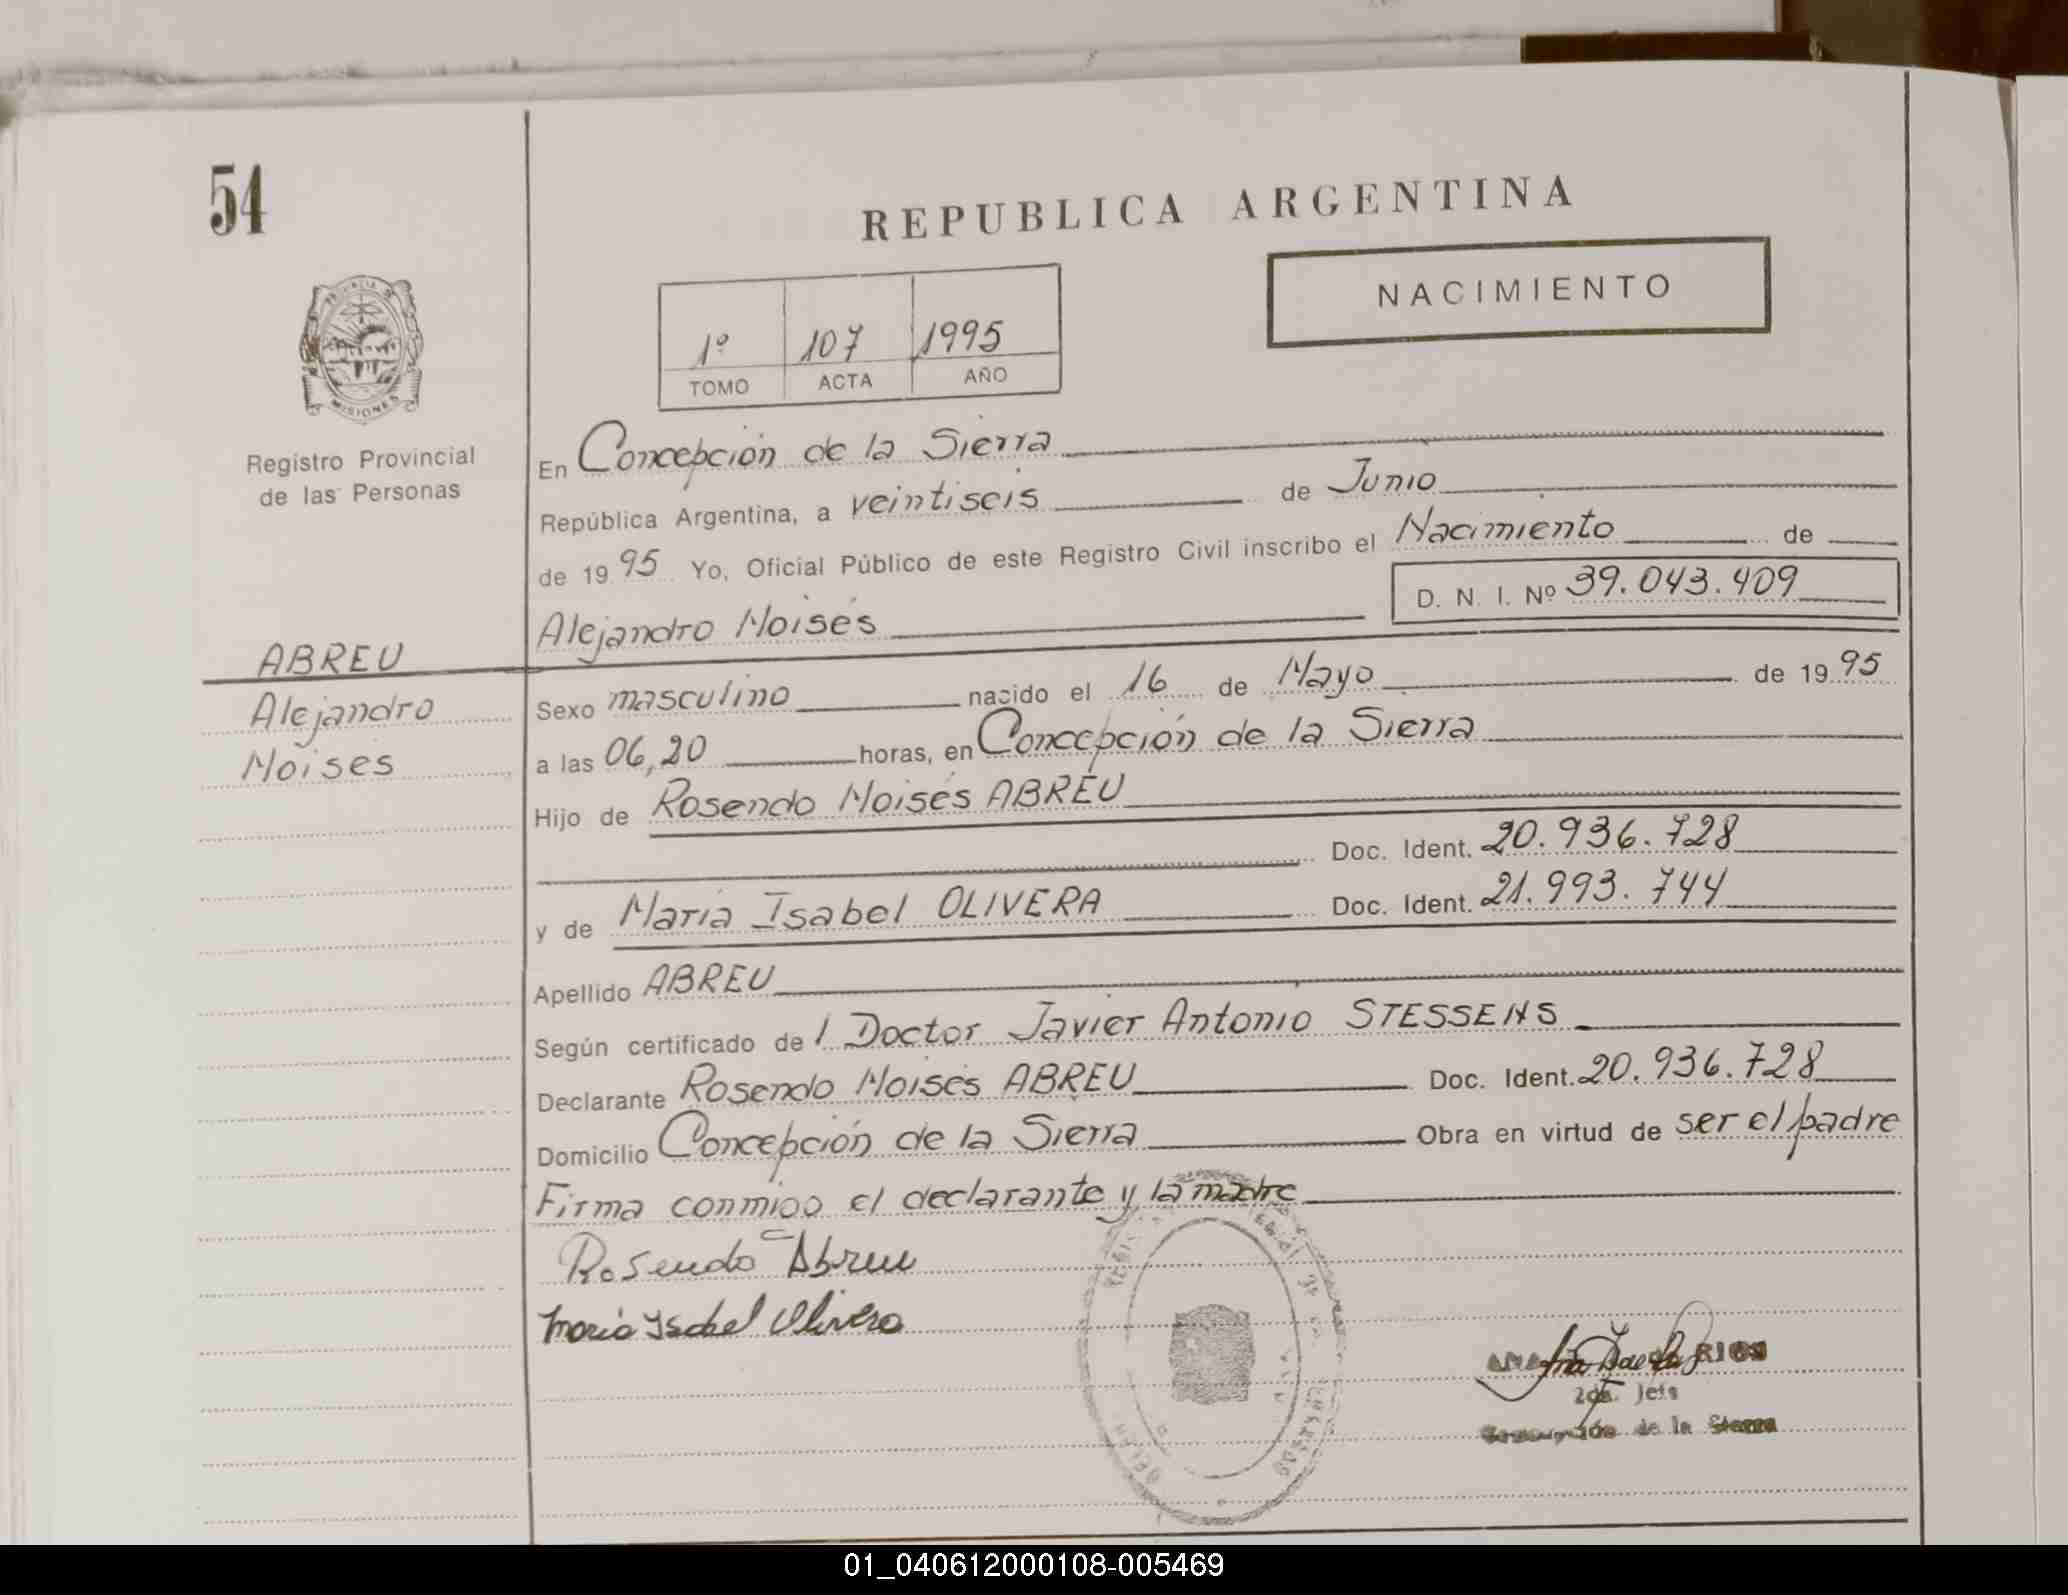 54
REPUBLICA ARGENTINA
NACIMIENTO
1º 107 1995
TOMO ACTA AÑO
PROVINCIA DE
MISIONES
Registro Provincial
de las Personas
En Concepción de la Sierra
República Argentina, a veintiseis de Junio
de 19 95 Yo, Oficial Público de este Registro Civil inscribo el Nacimiento de
D. N. I. Nº 39.043.409
Alejandro Moisés
ABREU
Alejandro
Moises
Sexo masculino nacido el 16 de Mayo de 19 95
a las 06,20 horas, en Concepción de la Sierra
Hijo de Rosendo Moisés ABREU
Doc. Ident. 20.936.728
y de María Isabel OLIVERA Doc. Ident. 21.993.744
Apellido ABREU
Según certificado de l Doctor Javier Antonio STESSENS
Declarante Rosendo Moisés ABREU Doc. Ident. 20.936.728
Domicilio Concepción de la Sierra Obra en virtud de ser el padre
Firma conmigo el declarante y la madre
Rosendo Abreu
Maria Isabel Olivera
RIOS
Jefe
de la Sierra
01_040612000108-005469